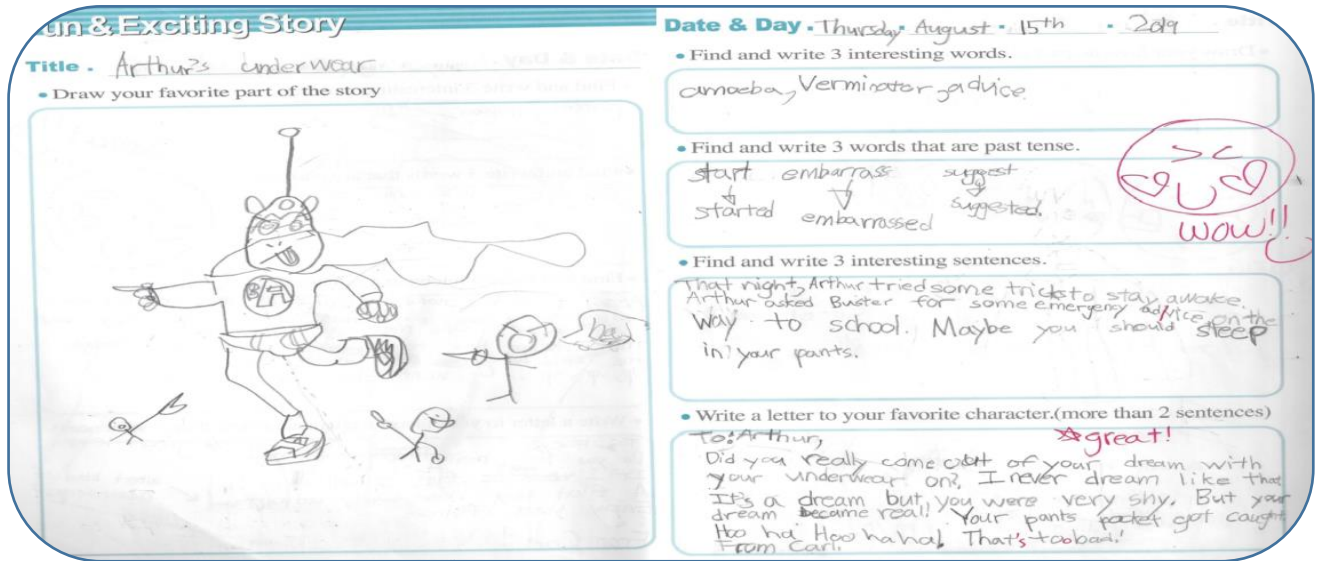 un & Exciting Story
Title . Arthur's underwear
• Draw your favorite part of the story
Date & Day . Thursday . August . 15th . 2019
• Find and write 3 interesting words.
amoeba, Verminator, advice
• Find and write 3 words that are past tense.
start embarrass suggest
started embarrossed suggested.
wow!!
• Find and write 3 interesting sentences.
That night, Arthur tried some tricks to stay awake.
Arthur asked Buster for some emergency advice on the
way to school. Maybe you should sleep
in your pants.
• Write a letter to your favorite character.(more than 2 sentences)
To: Arthur,
great!
Did you really come out of your dream with
your underwear on?, I never dream like that
It's a dream but, you were very shy. But your
dream became real! Your pants got caught
Hoo ha Hoo ha ha! That's too bad!
From Carl.